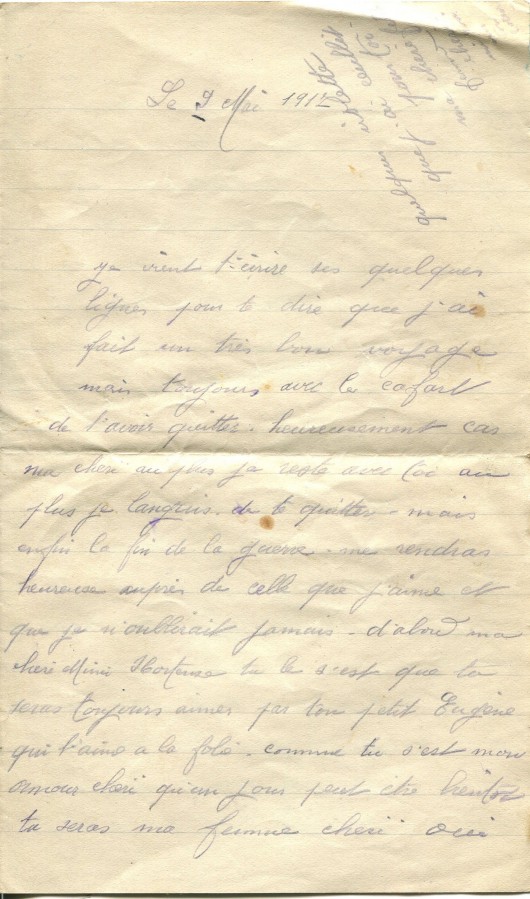 Le 9 Mai 1917
je vient t'écrire ses quelques
lignes pour te dire que j'ai
fait un très bon voyage
mais toujours avec le cafart
de t'avoir quitter. heureusement cas
ma cheri au plus je reste avec toi au
plus je languis de te quitter - mais
enfin la fin de la guerre - me rendras
heureuse auprès de celle que j'aime et
que je n'oublirait jamais - d'abord ma
cheri Mimi Hortense tu le s'est que tu
seras toujours aimer par ton petit Eugène
qui t'aime a la folie - comme tu s'est mon
amour cheri qu'un jour peut être bientot
tu seras ma femme cheri oui
quelqun